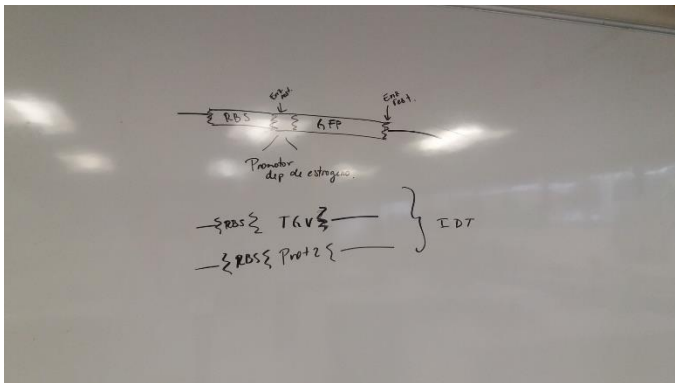 Enz rest.
RBS
GFP
Promotor
dep de estrogeno.
RBS TGV
RBS Prot2
IDT